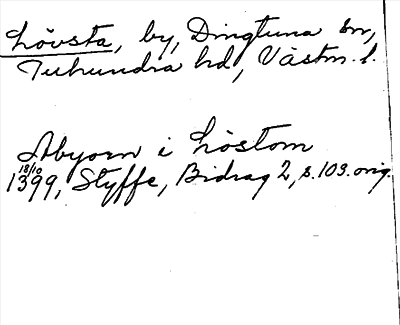 Lövsta, by, Dingtuna sn,
Tuhundra hd, Västm. l.
Abyorn i Löstom
18/10
1399, Styffe, Bidrag 2, s. 103. orig.